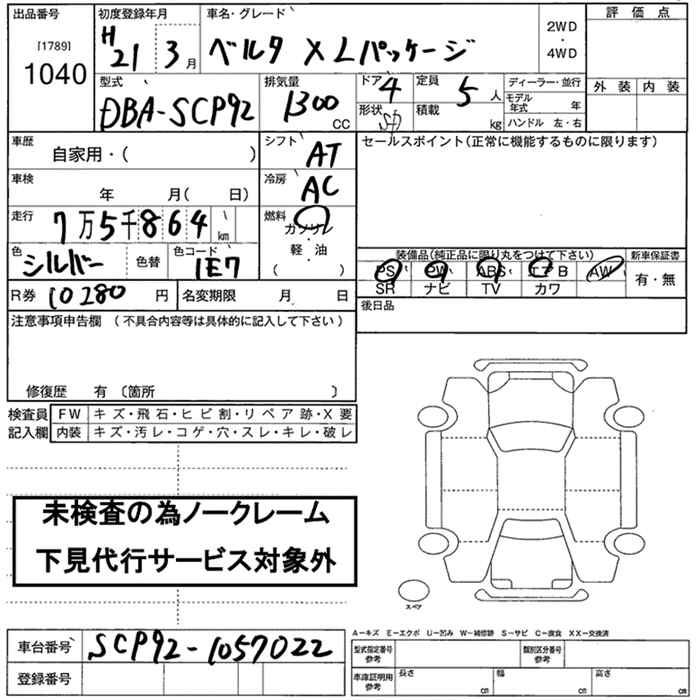 出品番号 初度登録年月 車名・グレード 評価点
[1789]
1040
H21 3月 ベルタ XLパッケージ 2WD・4WD
型式 排気量 ドア 4 定員 5人 ディーラー・並行 外装 内装
DBA-SCP92 1300 CC 形状 SD 積載 kg モデル年式 年
ハンドル 左・右
車歴 自家用・( ) シフト AT セールスポイント(正常に機能するものに限ります)
車検 年 月( 日) 冷房 AC
走行 7万5千864km 燃料 ガソリン・軽・油 ( )
色 シルバー 色替 色コード 1E7
装備品(純正品に限り丸をつけて下さい) 新車保証書
PS PW ABS エアB AW 有・無
SR ナビ TV カワ
R券 10280円 名変期限 月 日 後日品
注意事項申告欄 (不具合内容等は具体的に記入して下さい)
修復歴 有 〔箇所 〕
検査員 FW キズ・飛石・ヒビ割・リペア跡・X要
記入欄 内装 キズ・汚レ・コゲ・穴・スレ・キレ・破レ
未検査の為ノークレーム
下見代行サービス対象外
スペア
A―キズ E―エクボ U―凹み W―補修跡 S―サビ C―腐食 XX―交換済
車台番号 SCP92-1057022 型式指定番号 参考 類別区分番号 参考
登録番号 車庫証明用 参考 長さ cm 幅 cm 高さ cm